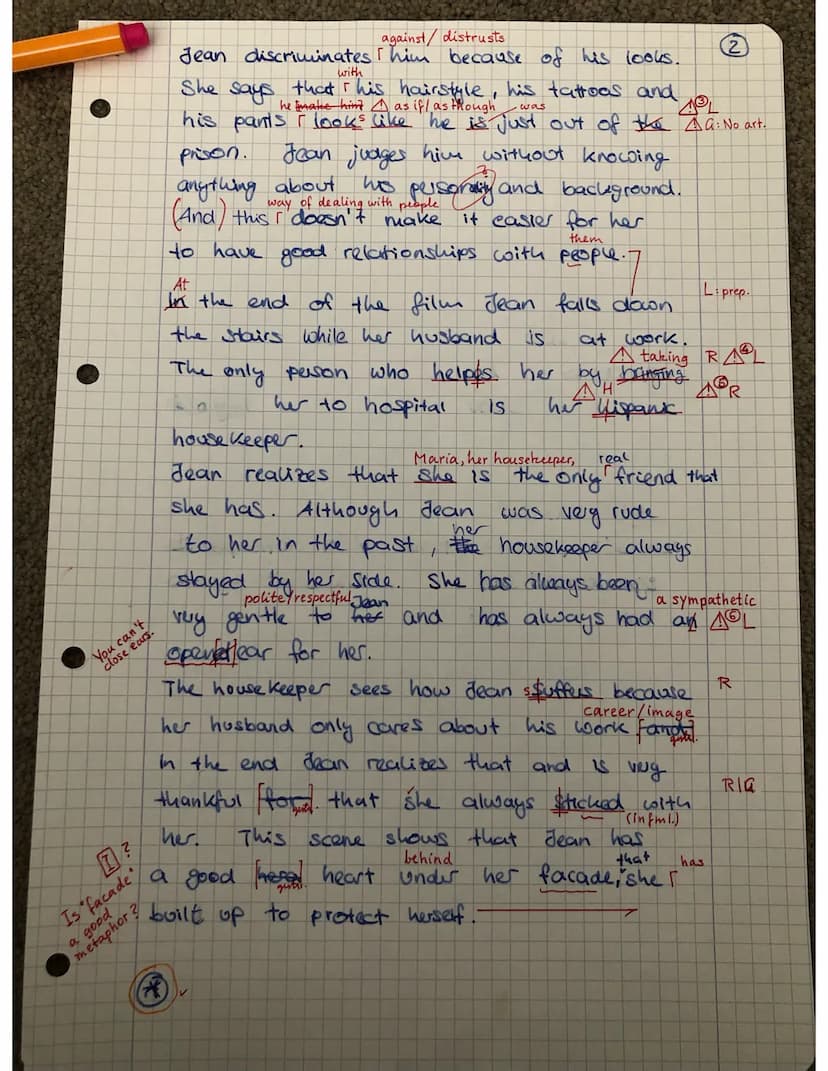 against/ distrusts
Jean discriminates ┌ him because of his looks.
2
with
She says that ┌ his hairstyle, his tattoos and
he [make him] ⚠ as if/as though was
⚠③L
his pants ┌ looks like he is just out of the
⚠ G: No art.
prison. Jean judges him without knowing
?
anything about his personality and background.
way of dealing with people
(And) this ┌ doesn't make it easier for her
them
to have good relationships with people.
At
L: prep.
In the end of the film Jean falls down
the stairs while her husband is at work.
⚠ taking R ⚠④L
The only person who helpes her by bringing
⚠ H
⚠⑤R
her to hospital is her hispanic
housekeeper.
Maria, her housekeeper, real
Jean realizes that she is the only ┌ friend that
she has. Although Jean was very rude
her
to her in the past, the housekeeper always
stayed by her side. She has always been
polite/respectful Jean
a sympathetic
very gentle to her and has always had an
⚠⑥L
You can't
close ears.
opened ear for her.
The housekeeper sees how Jean suffers because
R
career/image
her husband only cares about his work [and].
In the end Jean realizes that and is very
R/G
thankful [for] that she always sticked with
(infml.)
her. This scene shows that Jean has
behind that has
a good [here] heart under her facade, she ┌
I ?
Is "facade"
a good
metaphor?
built up to protect herself.
*